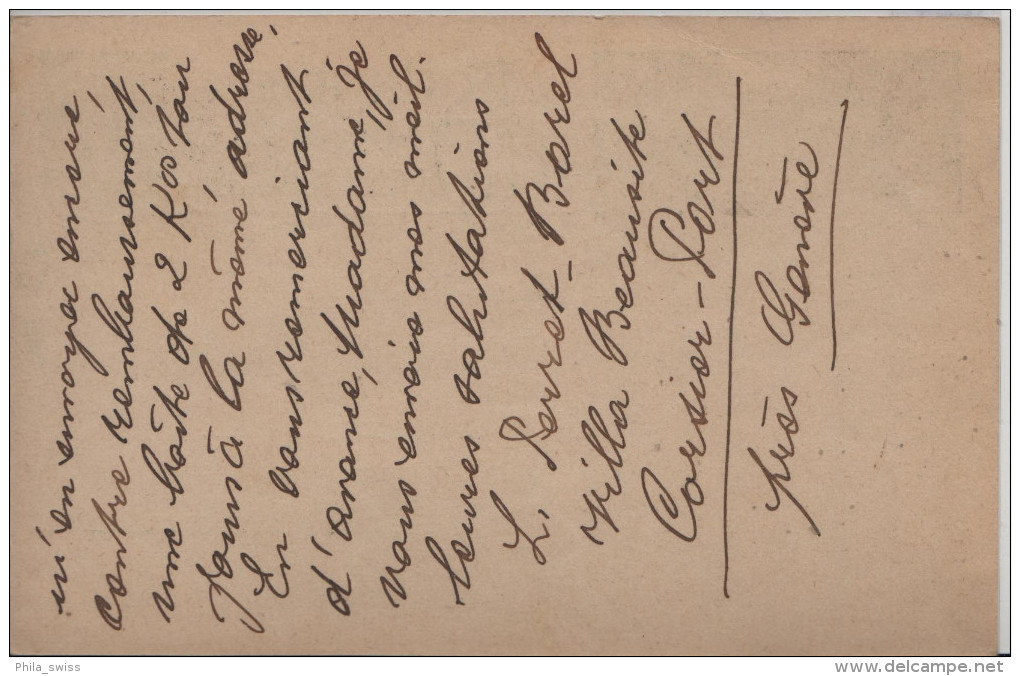 m'en envoyer aussi,
contre remboursement
une boîte de 2 Kos tou
jours à la même adresse.
En vous remerciant
d'avance, Madame, je
vous envoie mes meil.
leures salutations
L. Perret-Borel
Villa Beausite
Corsier-Port
près Genève
Phila_swiss
www.delcampe.net